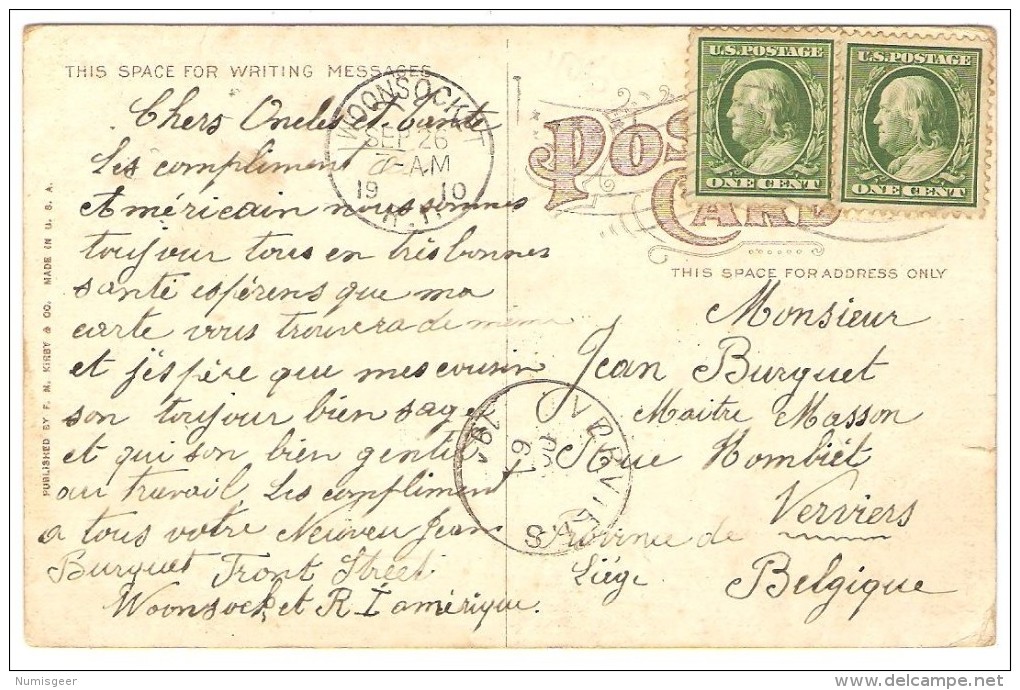 THIS SPACE FOR WRITING MESSAGES
Chers Oncles et tante
les compliment
Américain nous sommes
toujour tous en très bonnes
santé espérens que ma
carte vous trouvera de même
et j'éspère que mes cousin
son toujour bien sage
et qui son bien gentil
au travail les compliment
a tous votre Neuveu Jean
Burquet Front Street
Woonsocket R I amérique.
PUBLISHED BY F. M. KIRBY & CO. MADE IN U. S. A.
WOONSOCKET
SEP 26
-AM
19 10
R.I.
U.S. POSTAGE
ONE CENT
U.S. POSTAGE
ONE CENT
POST
CARD
THIS SPACE FOR ADDRESS ONLY
Monsieur
Jean Burquet
Maitre Masson
Rue
Verviers
Province de
Liége
Belgique
VERVIERS
Numisgeer
delcampe.net